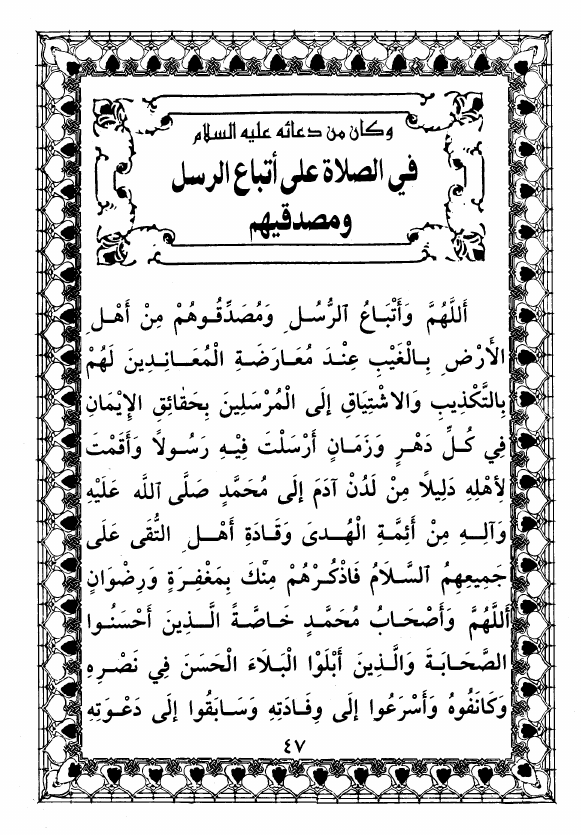 وكان من دعائه عليه السلام
في الصلاة على أتباع الرسل
ومصدقيهم
أَللَّهُمَّ وَأَتْبَاعُ ٱلرُّسُلِ وَمُصَدِّقُوهُمْ مِنْ أَهْلِ
الأَرْضِ بِالْغَيْبِ عِنْدَ مُعَارَضَةِ الْمُعَانِدِينَ لَهُمْ
بِالتَّكْذِيبِ وَالاشْتِيَاقِ إِلَى الْمُرْسَلِينَ بِحَقَائِقِ الإِيْمَانِ
فِي كُلِّ دَهْرٍ وَزَمَانٍ أَرْسَلْتَ فِيْهِ رَسُولاً وَأَقَمْتَ
لِأَهْلِهِ دَلِيلاً مِنْ لَدُنْ آدَمَ إِلَى مُحَمَّدٍ صَلَّى اللَّه عَلَيْهِ
وَآلِهِ مِنْ أَئِمَّةِ الْهُدَى وَقَادَةِ أَهْلِ التُّقَى عَلَى
جَمِيعِهِمُ ٱلسَّلَامُ فَاذْكُرْهُمْ مِنْكَ بِمَغْفِرَةٍ وَرِضْوَانٍ
أَللَّهُمَّ وَأَصْحَابُ مُحَمَّدٍ خَاصَّةً الَّذِينَ أَحْسَنُوا
الصَّحَابَةَ وَالَّذِينَ أَبْلَوْا الْبَلَاءَ الْحَسَنَ فِي نَصْرِهِ
وَكَانَفُوهُ وَأَسْرَعُوا إِلَى وِفَادَتِهِ وَسَابَقُوا إِلَى دَعْوَتِهِ
٤٧